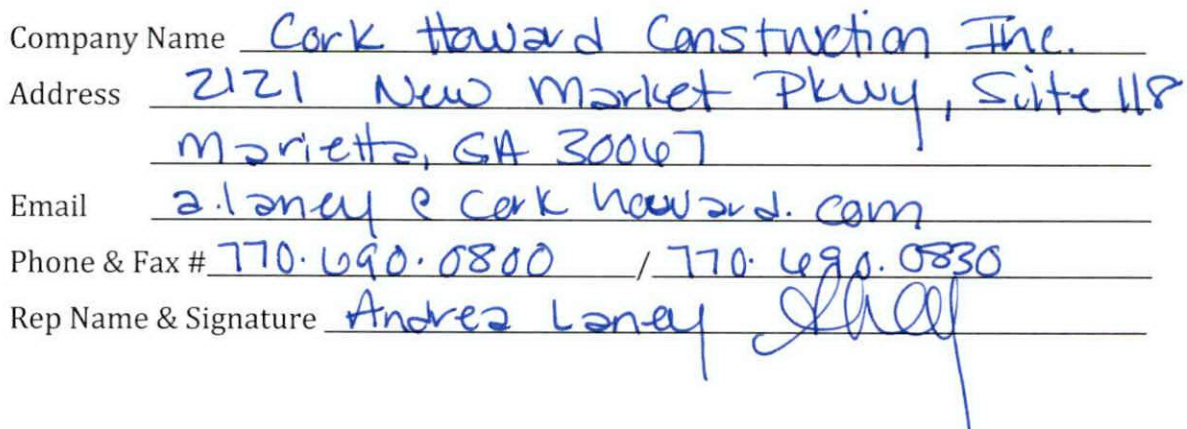 Company Name Cork Howard Construction Inc.
Address 2121 New Market Pkwy, Suite 118
Marietta, GA 30067
Email a.laney@corkhoward.com
Phone & Fax # 770.690.0800 / 770.690.0830
Rep Name & Signature Andrea Laney